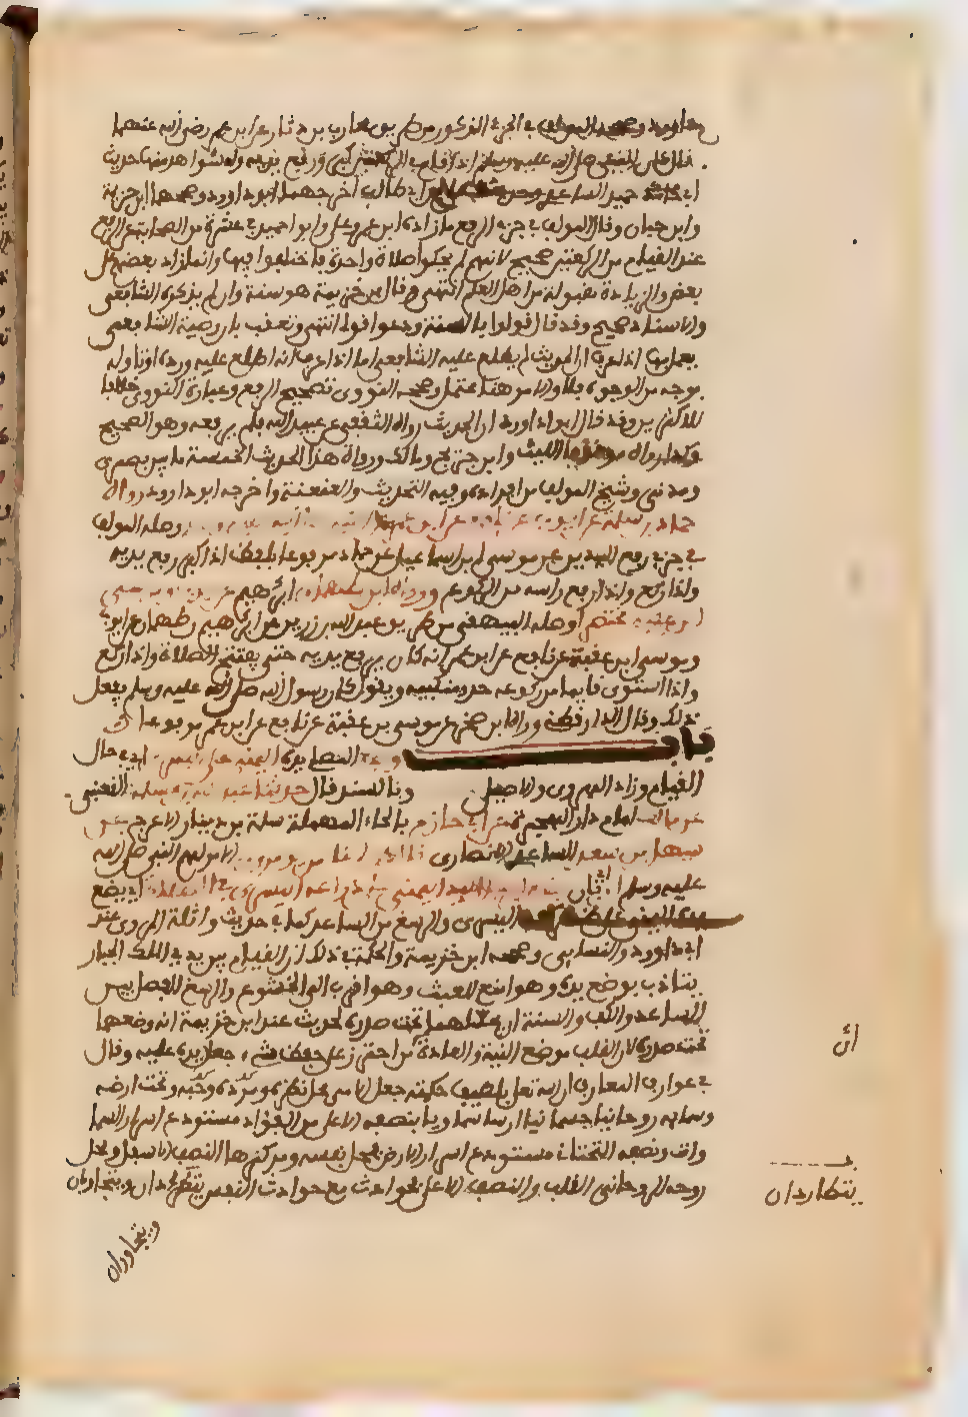 داوود وصححه المولف في الجزء المذكور من طريق محارب بن دثار عن ابن عمر رضي الله عنهما
قال كان النبي صلى الله عليه وسلم اذا قام في الركعتين كبر ورفع يديه وله شواهد منها حديث
ابي حميد الساعدي وحديث علي بن ابي طالب اخرجهما ابو داوود وصححهما ابن خزيمة
وابن حبان وقال المولف في جزء الرفع ما زاده ابن عمر وعلي وابو حميد في عشرة من الصحابة من الرفع
عند القيام من الركعتين صحيح لانهم لم يحكوا صلاة واحدة فاختلفوا فيها وانما زاد بعضهم على
بعض والزيادة مقبولة من اهل العلم انتهى وقال ابن خزيمة هو سنة وان لم يذكره الشافعي
والاسناد صحيح وقد قال قولوا بالسنة ودعوا قولي انتهى وتعقب بان وصية الشافعي
يعمل بها اذا عرف ان الحديث لم يطلع عليه الشافعي اما اذا عرف انه اطلع عليه ورده او تاوله
بوجه من الوجوه فلا والامر هنا محتمل وصحح النووي تصحيح الرفع وعبارة النووي خلافا
للاكثرين وقد قال ابو داوود ان الحديث رواه الثقفي عن عبيد الله فلم يرفعه وهو الصحيح
وكذا رواه موقوفا الليث وابن جريج ومالك ورواة هذا الحديث الخمسة ما بين بصري
ومدني وشيخ المولف من افراده وفيه التحديث والعنعنة واخرجه ابو داوود ورواه
حماد بن سلمة عن ايوب عن نافع عن ابن عمر عن النبي صلى الله عليه وسلم وصله المولف
في جزء رفع اليدين عن موسى بن اسماعيل عن حماد مرفوعا بلفظ اذا كبر رفع يديه
واذا ركع واذا رفع راسه من الركوع ورواه ابن طهمان ابراهيم عن ايوب وموسى
ابن عقبة مختصرا وصله البيهقي من طريق عبد الله بن رزين عن ابراهيم بن طهمان عن ايوب
وموسى ابن عقبة عن نافع عن ابن عمر انه كان يرفع يديه حين يفتتح الصلاة واذا ركع
واذا استوى قائما من ركوعه حذو منكبيه ويقول كان رسول الله صلى الله عليه وسلم يفعل
ذلك وقال الدارقطني ورواه ابن صخر عن موسى بن عقبة عن نافع عن ابن عمر موقوفا
باب وضع المصلي يده اليمنى على اليسرى اي في حال
القيام وزاد الهروي والاصيلي وبالسند قال حدثنا عبد الله بن مسلمة القعنبي
عن مالك امام دار الهجرة عن ابي حازم بالحاء المهملة سلمة بن دينار الاعرج عن
سهل بن سعد الساعدي الانصاري قال كان الناس يومرون الامر لهم النبي صلى الله
عليه وسلم ان يضع الرجل اليد اليمنى على ذراعه اليسرى في الصلاة اي يضع
اليسرى والرسغ من الساعد كما في حديث واثلة المروي عند
ابي داوود والنسايي وصححه ابن خزيمة والحكمة في ذلك ان القيام بين يدي الملك الجبار
يتادب بوضع يده وهو امنع للعبث وهو اقرب الى الخشوع والرسغ المفصل بين
الساعد والكف والسنة ان يجعلهما تحت صدره لحديث عند ابن خزيمة انه وضعهما
تحت صدره لان القلب موضع النية والعادة ان من احترز على حفظ شيء جعل يده عليه وقال
في عوارف المعارف ان الله تعالى بلطيف حكمته جعل الادمي محل نظره ومورد وحيه ونخبة ارضه
وسمايه روحانيا جسمانيا ارضيا سماويا فنصفه الاعلى من الفؤاد مستودع اسرار السما
وات ونصفه التحتاني مستودع اسرار الارض فمحل نفسه ومركزها النصف الاسفل ومحل
روحه الروحاني القلب والنصف الاعلى فجواذب الروح مع جواذب النفس يتطاردان ويتجاذبان
ان
يتطاردان
ويتحاوران